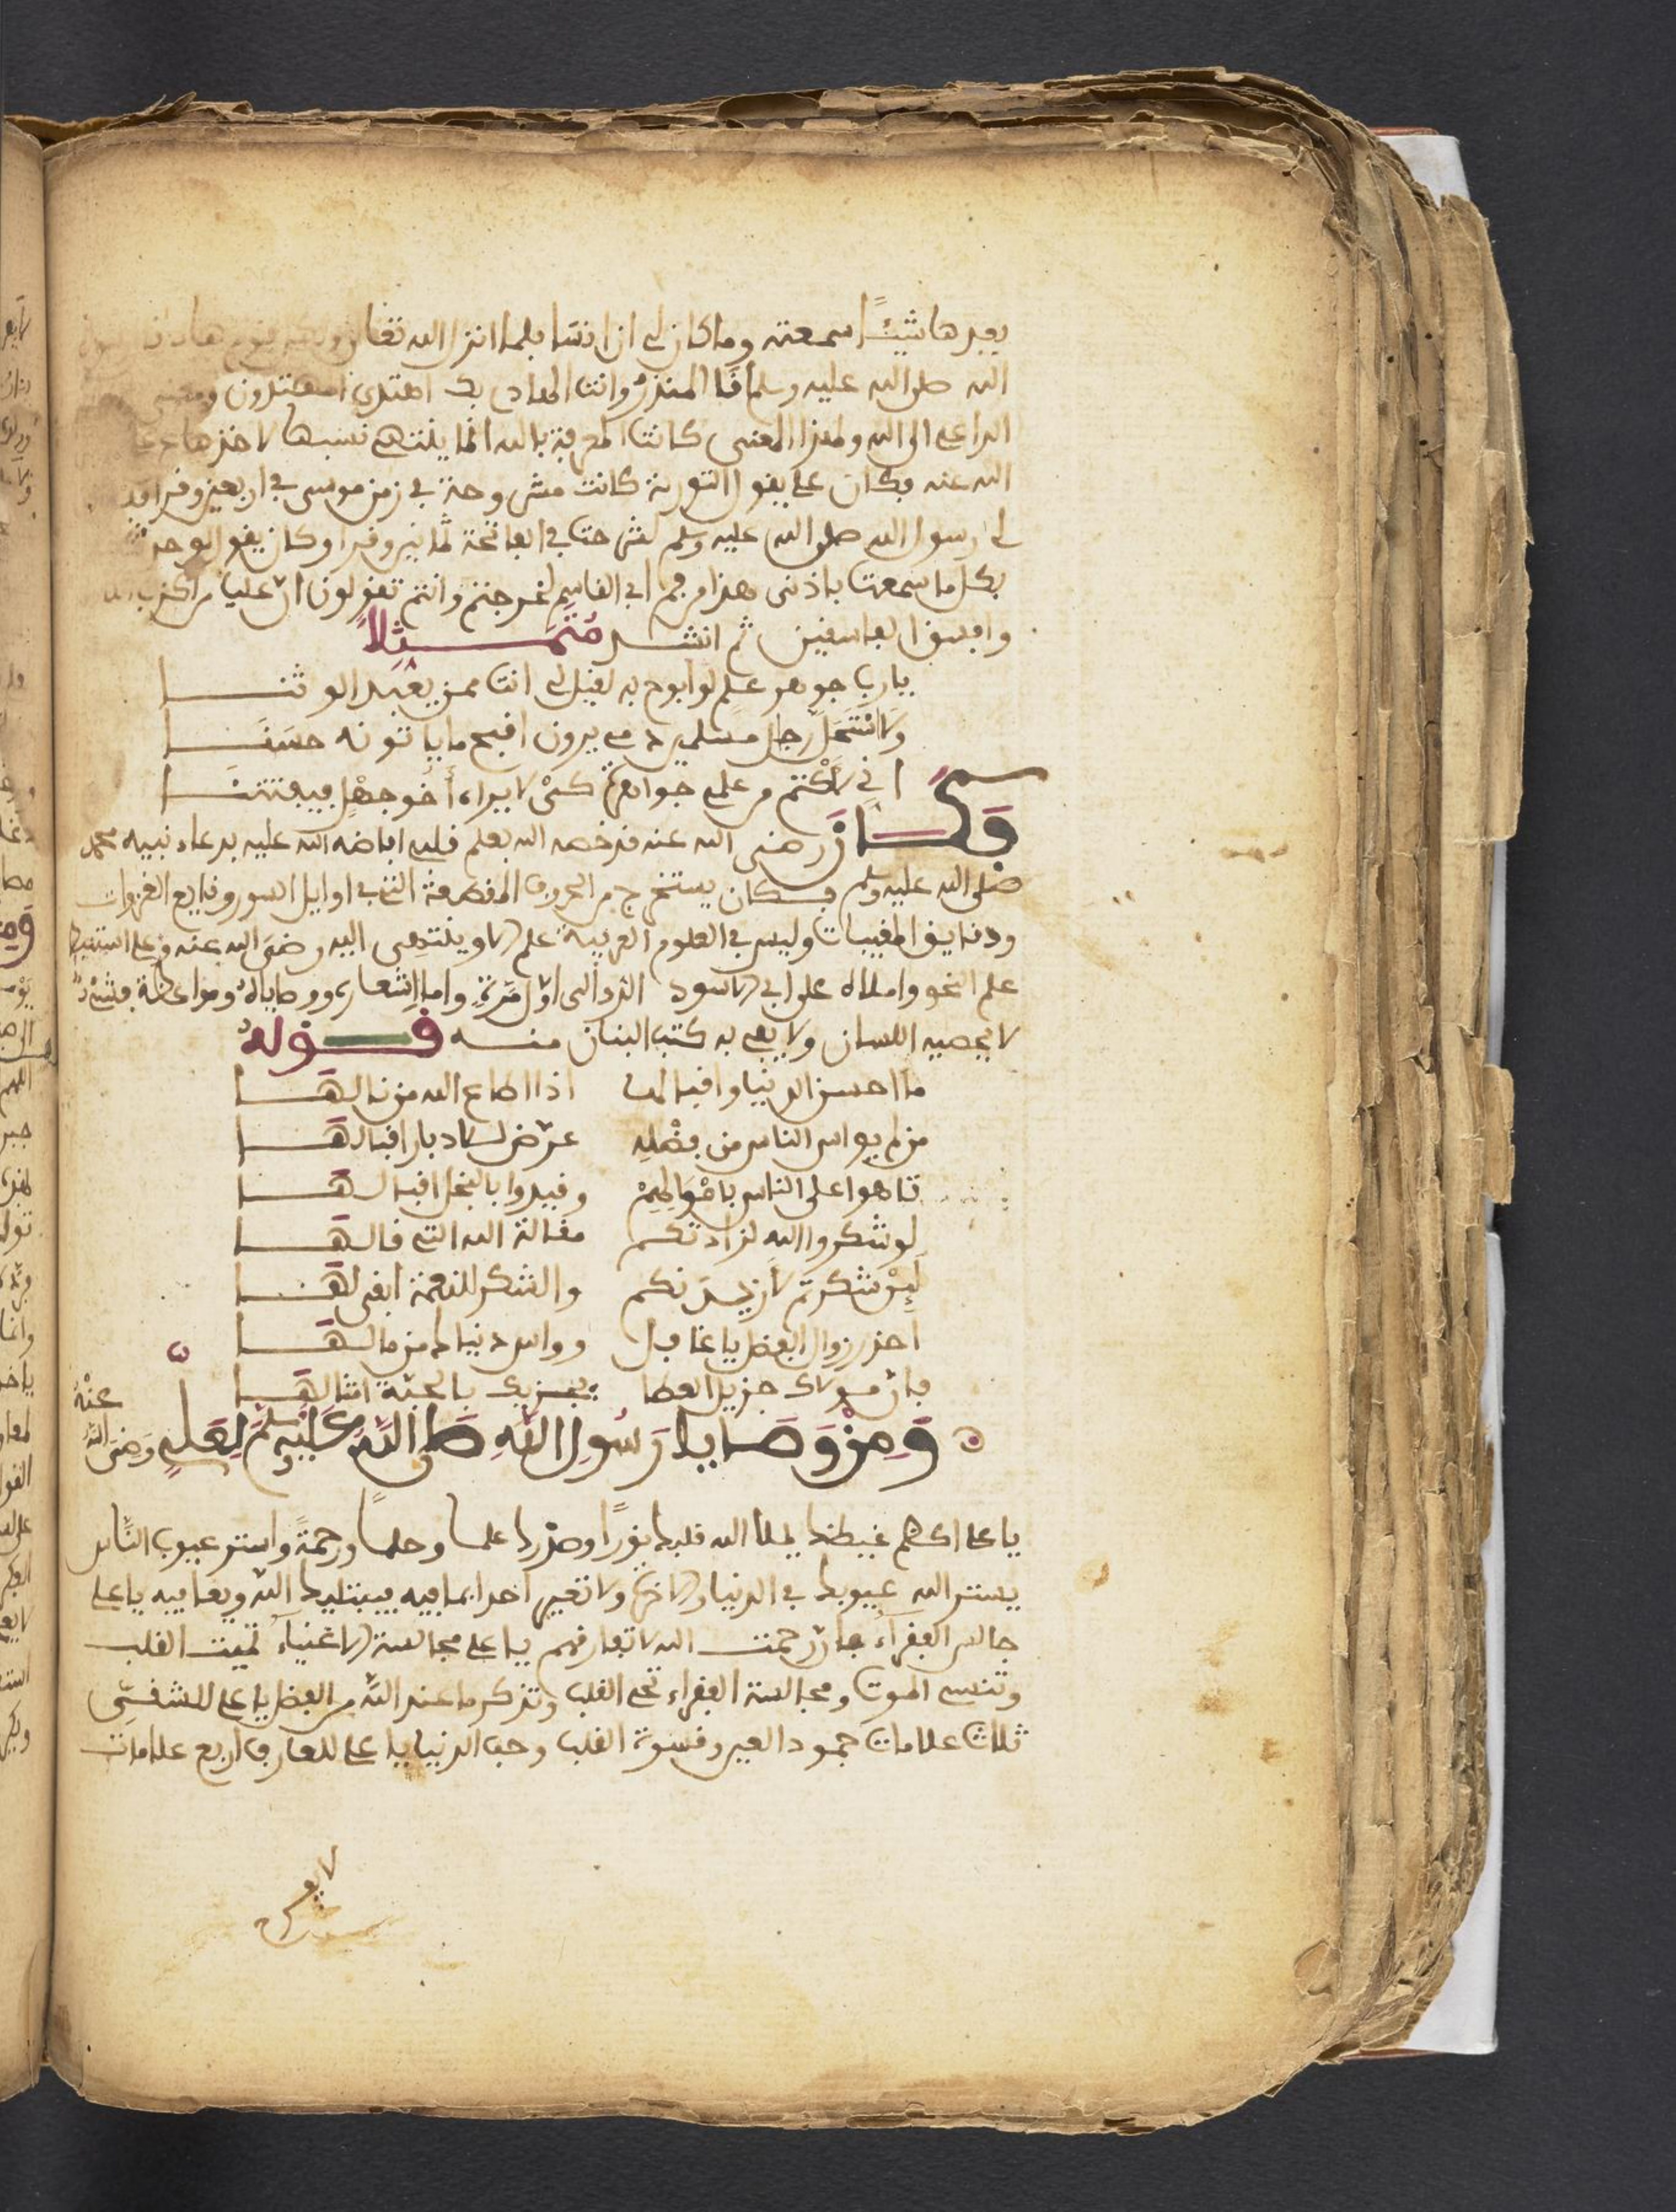 بعدها شيئًا سمعته وما كان لي ان انسا فلما انزل الله تعالى ولكل قوم هاد
الله صلى الله عليه وسلم انا المنذر وانت الهادي بك اهتدى المهتدون
الداعي الى الله ولهذا المعنى كانت المعرفة بالله انما ينتهي نسبها لاخذها
الله عنه فكان علي يقول التورية كانت مشروحة في زمن موسى في اربعين وقرا
لي رسول الله صلى الله عليه وسلم لشرحت في الفاتحة ثمانين وقرا وكان يقول لو حدثت
بكل ما سمعت باذني هذا من فم ابي القاسم لخرجتم وانتم تقولون ان عليا من اكذب
وافسق الفاسقين ثم انشد مُتَمَثِّلاً
يا رب جوهر علم لو ابوح به لقيل لي انت ممن يعبد الوثنا
ولاستحل رجل مسلمين دمي يرون اقبح ما ياتونه حسنا
اني لاكتم من علمي جواهره كي لا يراه أخو جهل فيفتتنا
فكان رضي الله عنه قد خصه الله بعلم قلبي افاضه الله عليه بدعاء نبيه محمد
صلى الله عليه وسلم فكان يستخرج من الحروف المقطعة التي في اوايل السور وقايع الغزوات
ودقايق المغيبات وليس في العلوم العربية علم الا وينتهي اليه رضي الله عنه وعلي استنبط
علم النحو واملاه على ابي الاسود الدؤلي اول مرة واما اشعاره ووصاياه ومواعظه فشيء
لا يحصيه اللسان ولا يفي به كتب البنان منه قوله
ما احسن الدنيا واقبالها اذا اطاع الله من نالها
من لم يواس الناس من فضله عرّض للادبار اقبالها
تاهوا على الناس باموالهم وقيدوا بالبخل اقبالها
لو شكروا الله لزادتكم مقالة الله التي قالها
لين شكرتم لازيدنكم والشكر للنعمة ابقى لها
احذر زوال الفضل يا غافل وواس دنياك من مالها
فان مولاك جزيل العطا يجزيك بالحبة امثالها
وَمِنْ وَصَايا رَسُولِ اللهِ صَلى اللهُ عَلَيْهِ وسلم لِعَلي رَضِيَ اللهُ عنْهُ
يا علي اكظم غيظك يملا الله قلبك نورًا وصدرك علما وحلما ورحمةً واستر عيوب الناس
يستر الله عيوبك في الدنيا والاخرة ولا تعير احدا بما فيه فيبتليك الله ويعافيه يا علي
جالس الفقراء فان رحمت الله لا تفارقهم يا علي مجالسة الاغنياء تميت القلب
وتنسي الموت ومجالسة الفقراء تحي القلب وتذكر ما عند الله من الفضل يا علي للشقي
ثلاث علامات جمود العين وقسوة القلب وحب الدنيا يا علي للعارف اربع علامات